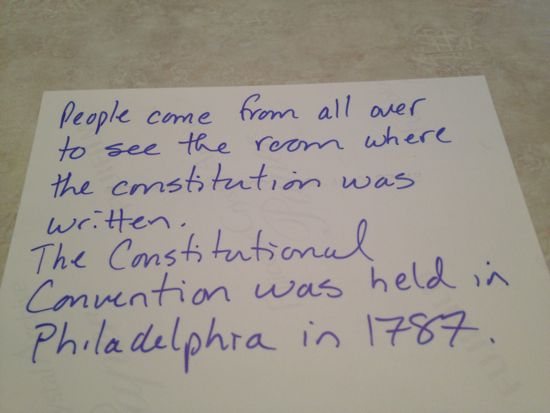 People come from all over
to see the room where
the constitution was
written.
The Constitutional
Convention was held in
Philadelphia in 1787.